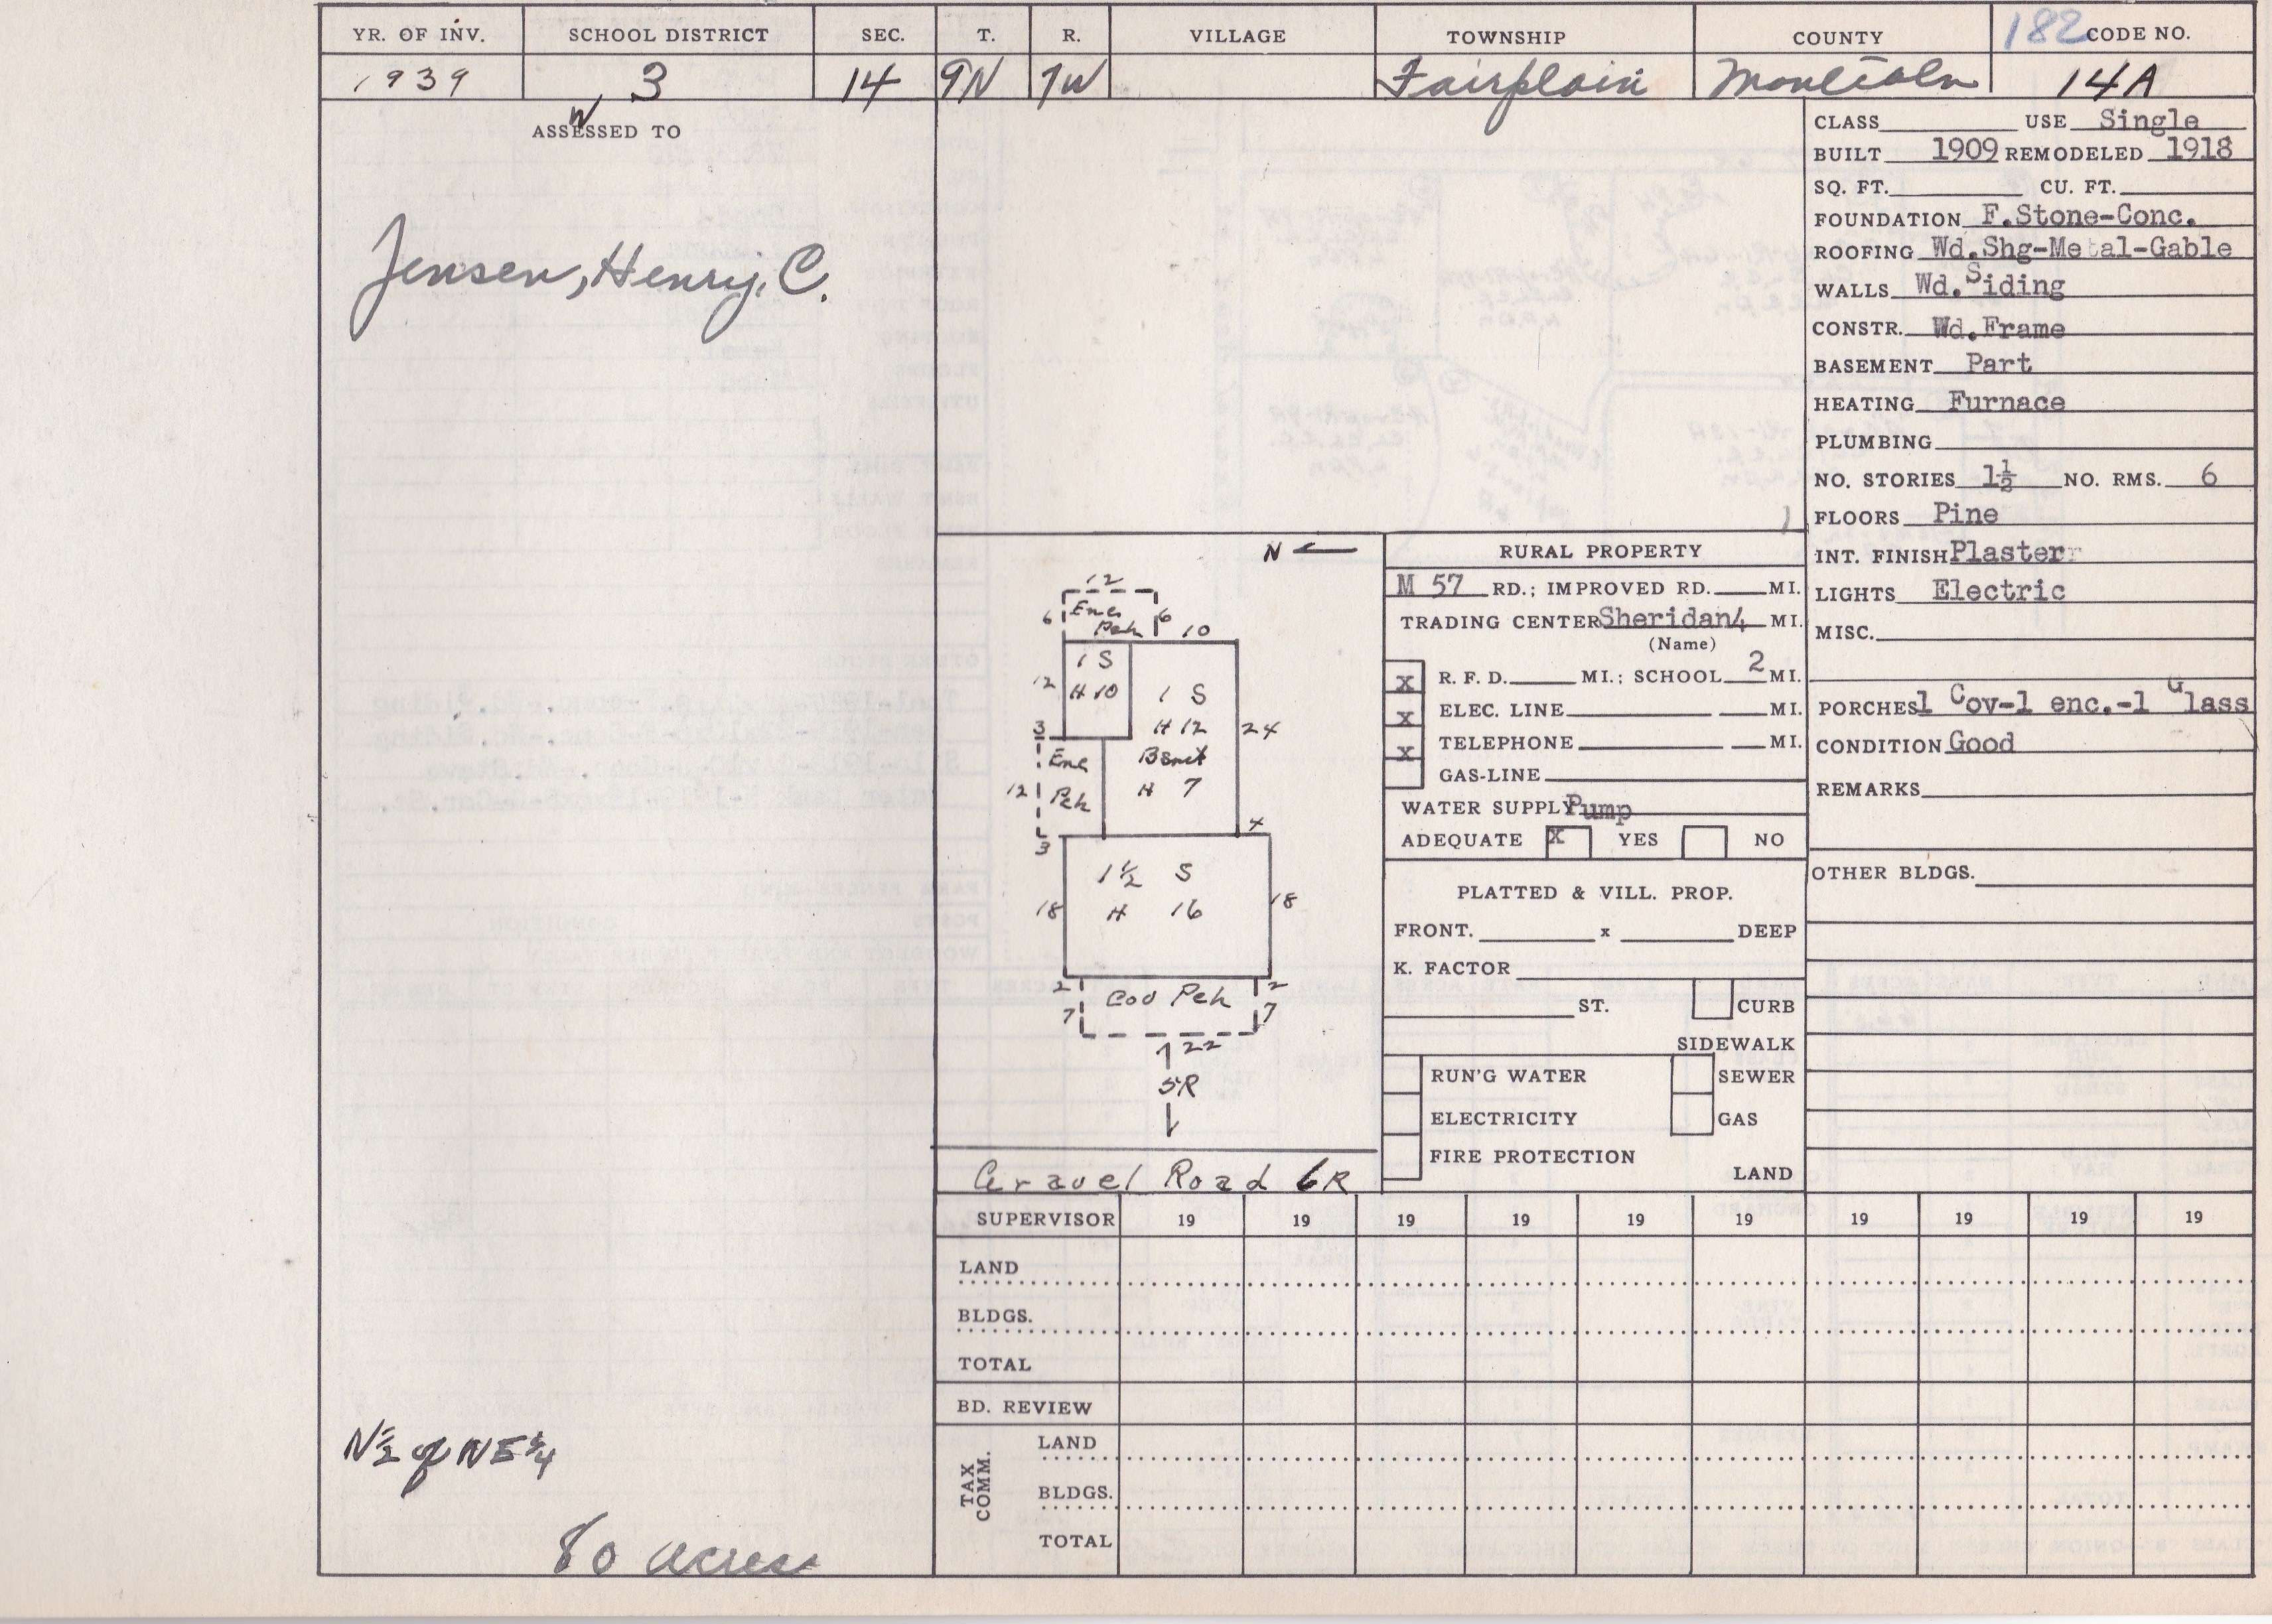 YR. OF INV. SCHOOL DISTRICT SEC. T. R. VILLAGE TOWNSHIP COUNTY 182 CODE NO.
1939 3 14 9N 7W Fairplain Montcalm 14A
W
ASSESSED TO
Jensen, Henry, C.
N½ of NE¼
80 acres
CLASS USE Single
BUILT 1909 REMODELED 1918
SQ. FT. CU. FT.
FOUNDATION F.Stone-Conc.
ROOFING Wd.Shg-Metal-Gable
WALLS Wd.Siding
CONSTR. Wd.Frame
BASEMENT Part
HEATING Furnace
PLUMBING
NO. STORIES 1½ NO. RMS. 6
FLOORS Pine
INT. FINISH Plaster
LIGHTS Electric
MISC.
PORCHES 1 Cov-1 enc.-1 Glass
CONDITION Good
REMARKS
OTHER BLDGS.
N
12
6 Enc Pch 6
10
1 S
H 10
12
1 S
H 12
Bsmt
H 7
24
3
Enc
Pch
12
3
4
1½ S
H 16
18 18
2 Cov Pch 2
7 7
22
5R
Gravel Road 6R
RURAL PROPERTY
M 57 RD.; IMPROVED RD. MI.
TRADING CENTER Sheridan 4 MI.
(Name)
X R. F. D. MI.; SCHOOL 2 MI.
X ELEC. LINE MI.
X TELEPHONE MI.
GAS-LINE
WATER SUPPLY Pump
ADEQUATE X YES NO
PLATTED & VILL. PROP.
FRONT. x DEEP
K. FACTOR
ST. CURB
SIDEWALK
RUN'G WATER SEWER
ELECTRICITY GAS
FIRE PROTECTION
LAND
SUPERVISOR 19 19 19 19 19 19 19 19 19 19
LAND
BLDGS.
TOTAL
BD. REVIEW
TAX COMM.
LAND
BLDGS.
TOTAL